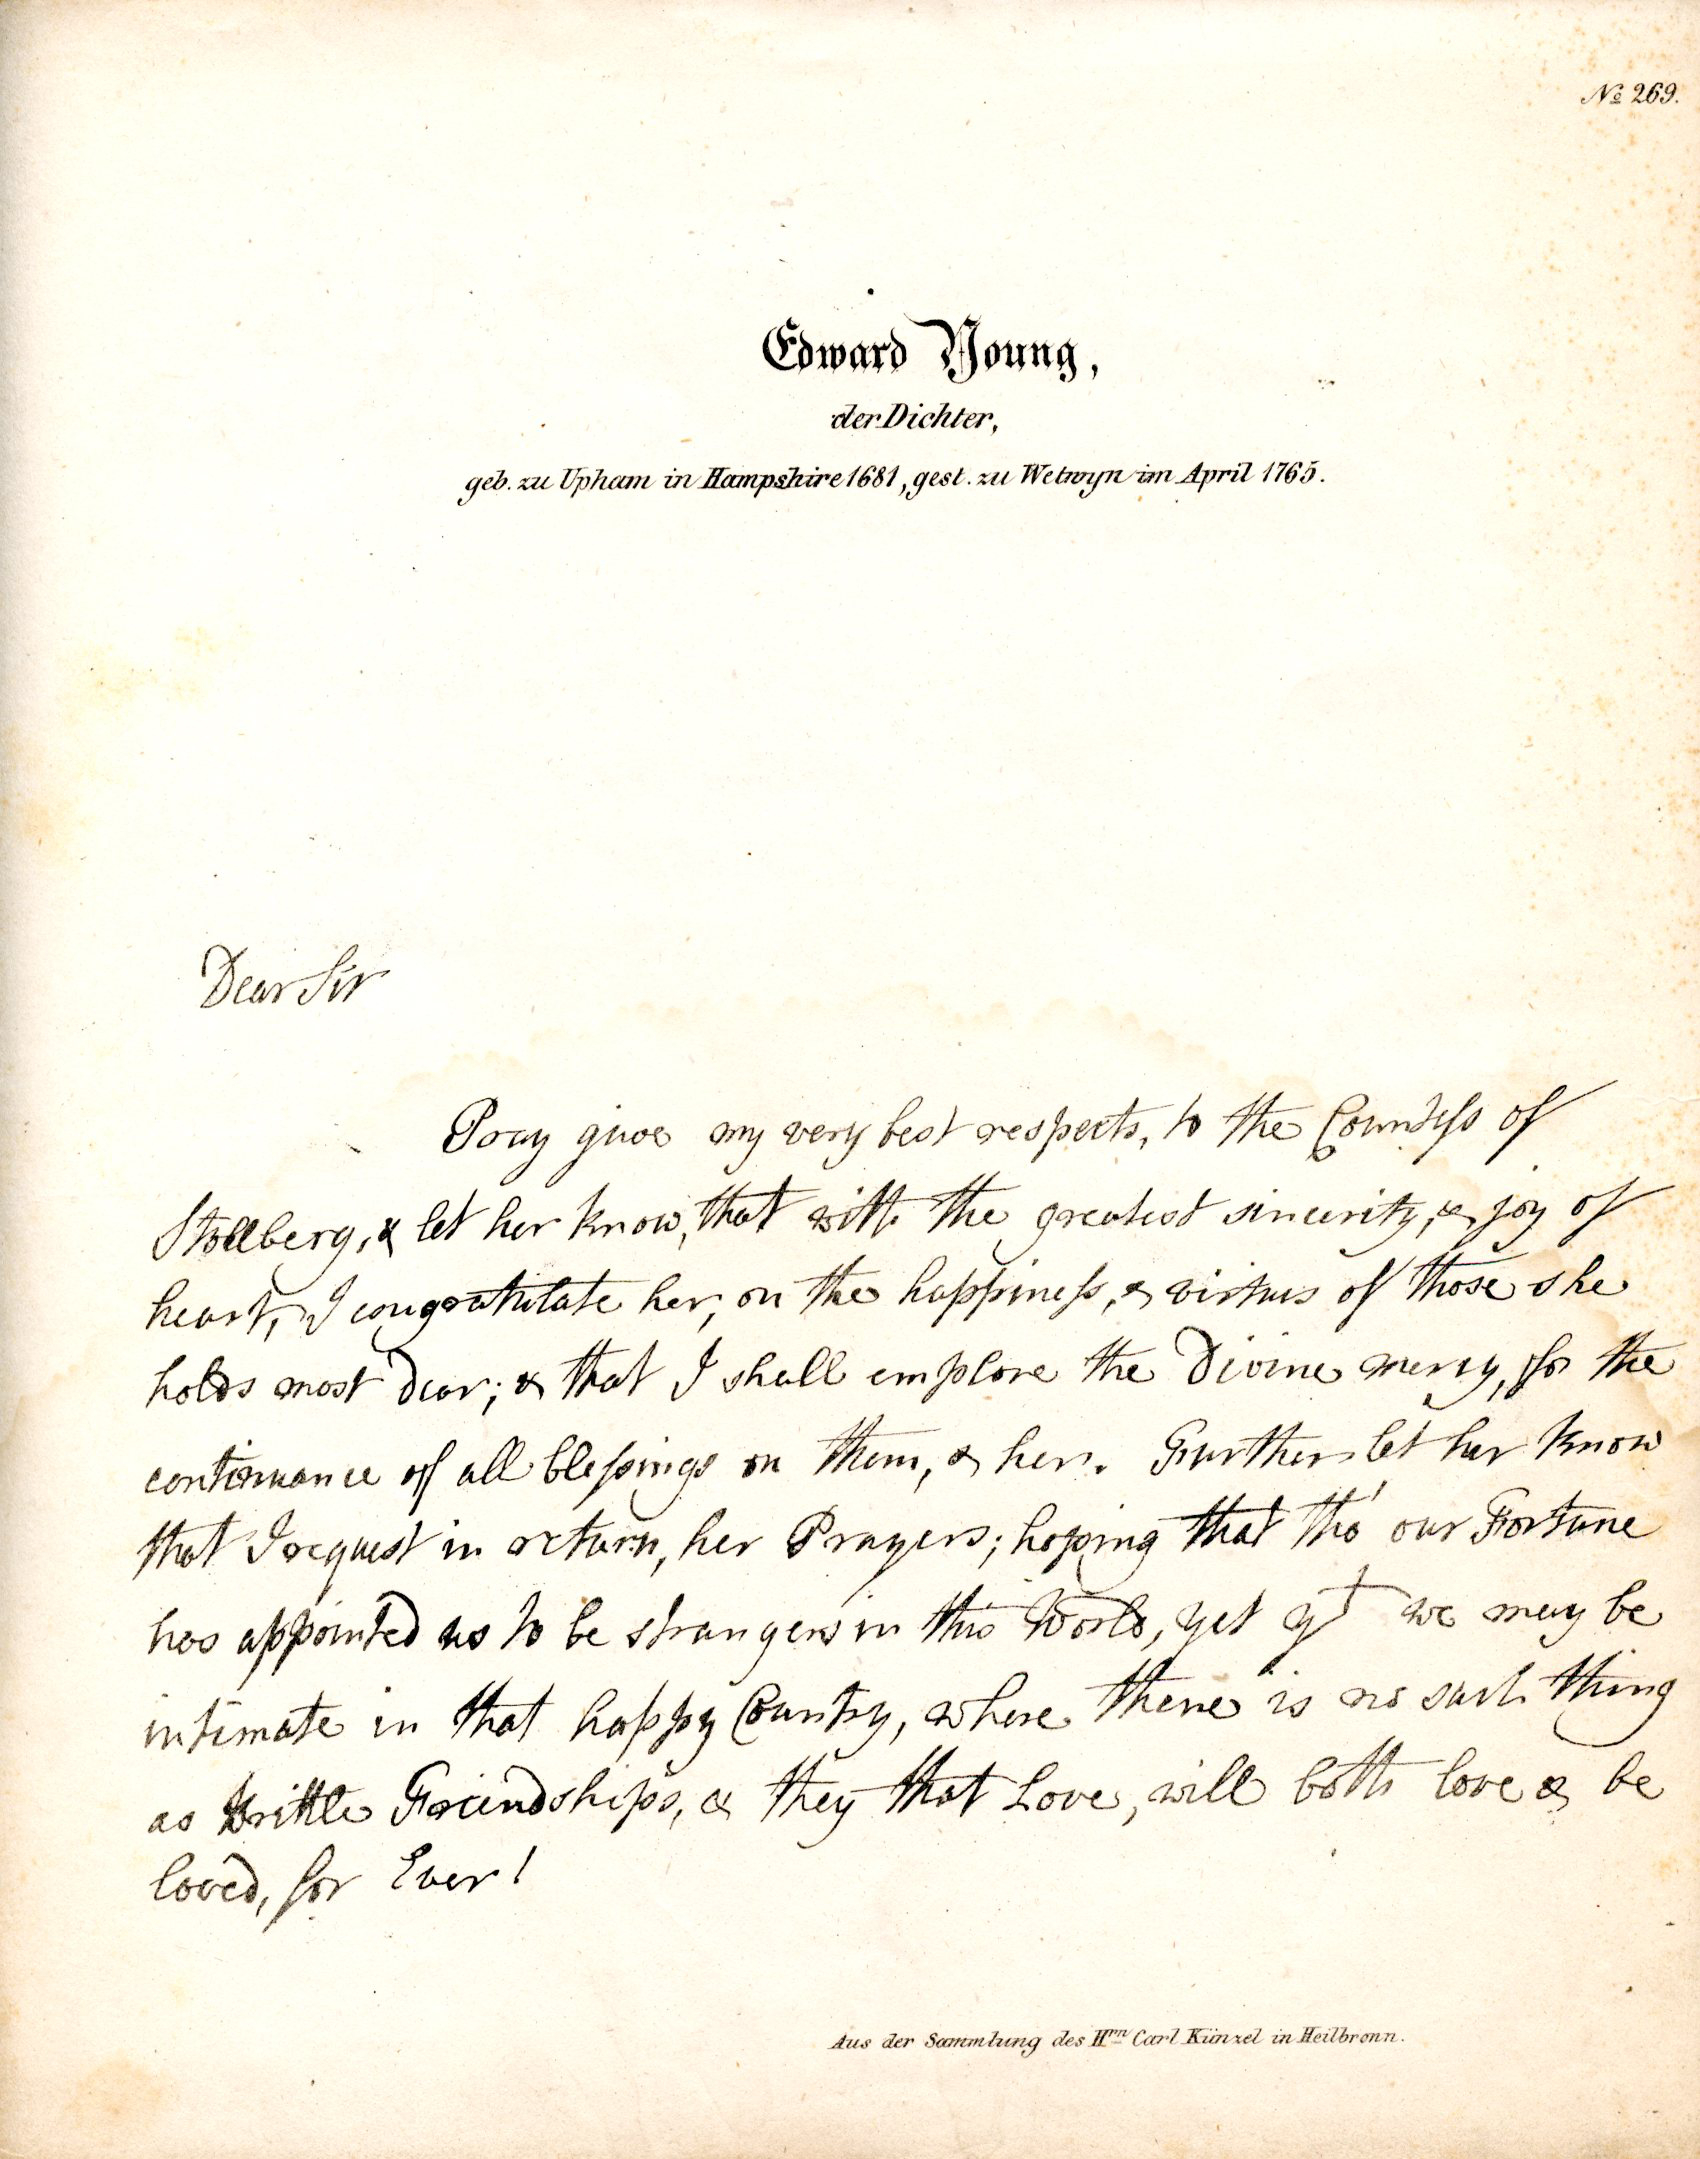 No 269.
Edward Young,
der Dichter,
geb. zu Upham in Hampshire 1681, gest. zu Welwyn im April 1765.
Dear Sir
Pray give my very best respects, to the Countess of
Stollberg, & let her know, that with the greatest sincerity, & joy of
heart, I congratulate her, on the happiness, & virtues of those she
holds most dear; & that I shall emplore the Divine mercy, for the
continuance of all blessings on them, & her. Further let her know
that I request in return, her Prayers; hoping that tho' our Fortune
has appointed us to be strangers in this World, yet yt we may be
intimate in that happy Country, where there is no such thing
as brittle Friendships, & they that Love, will both love & be
loved, for Ever!
Aus der Sammlung des Hrn Carl Künzel in Heilbronn.